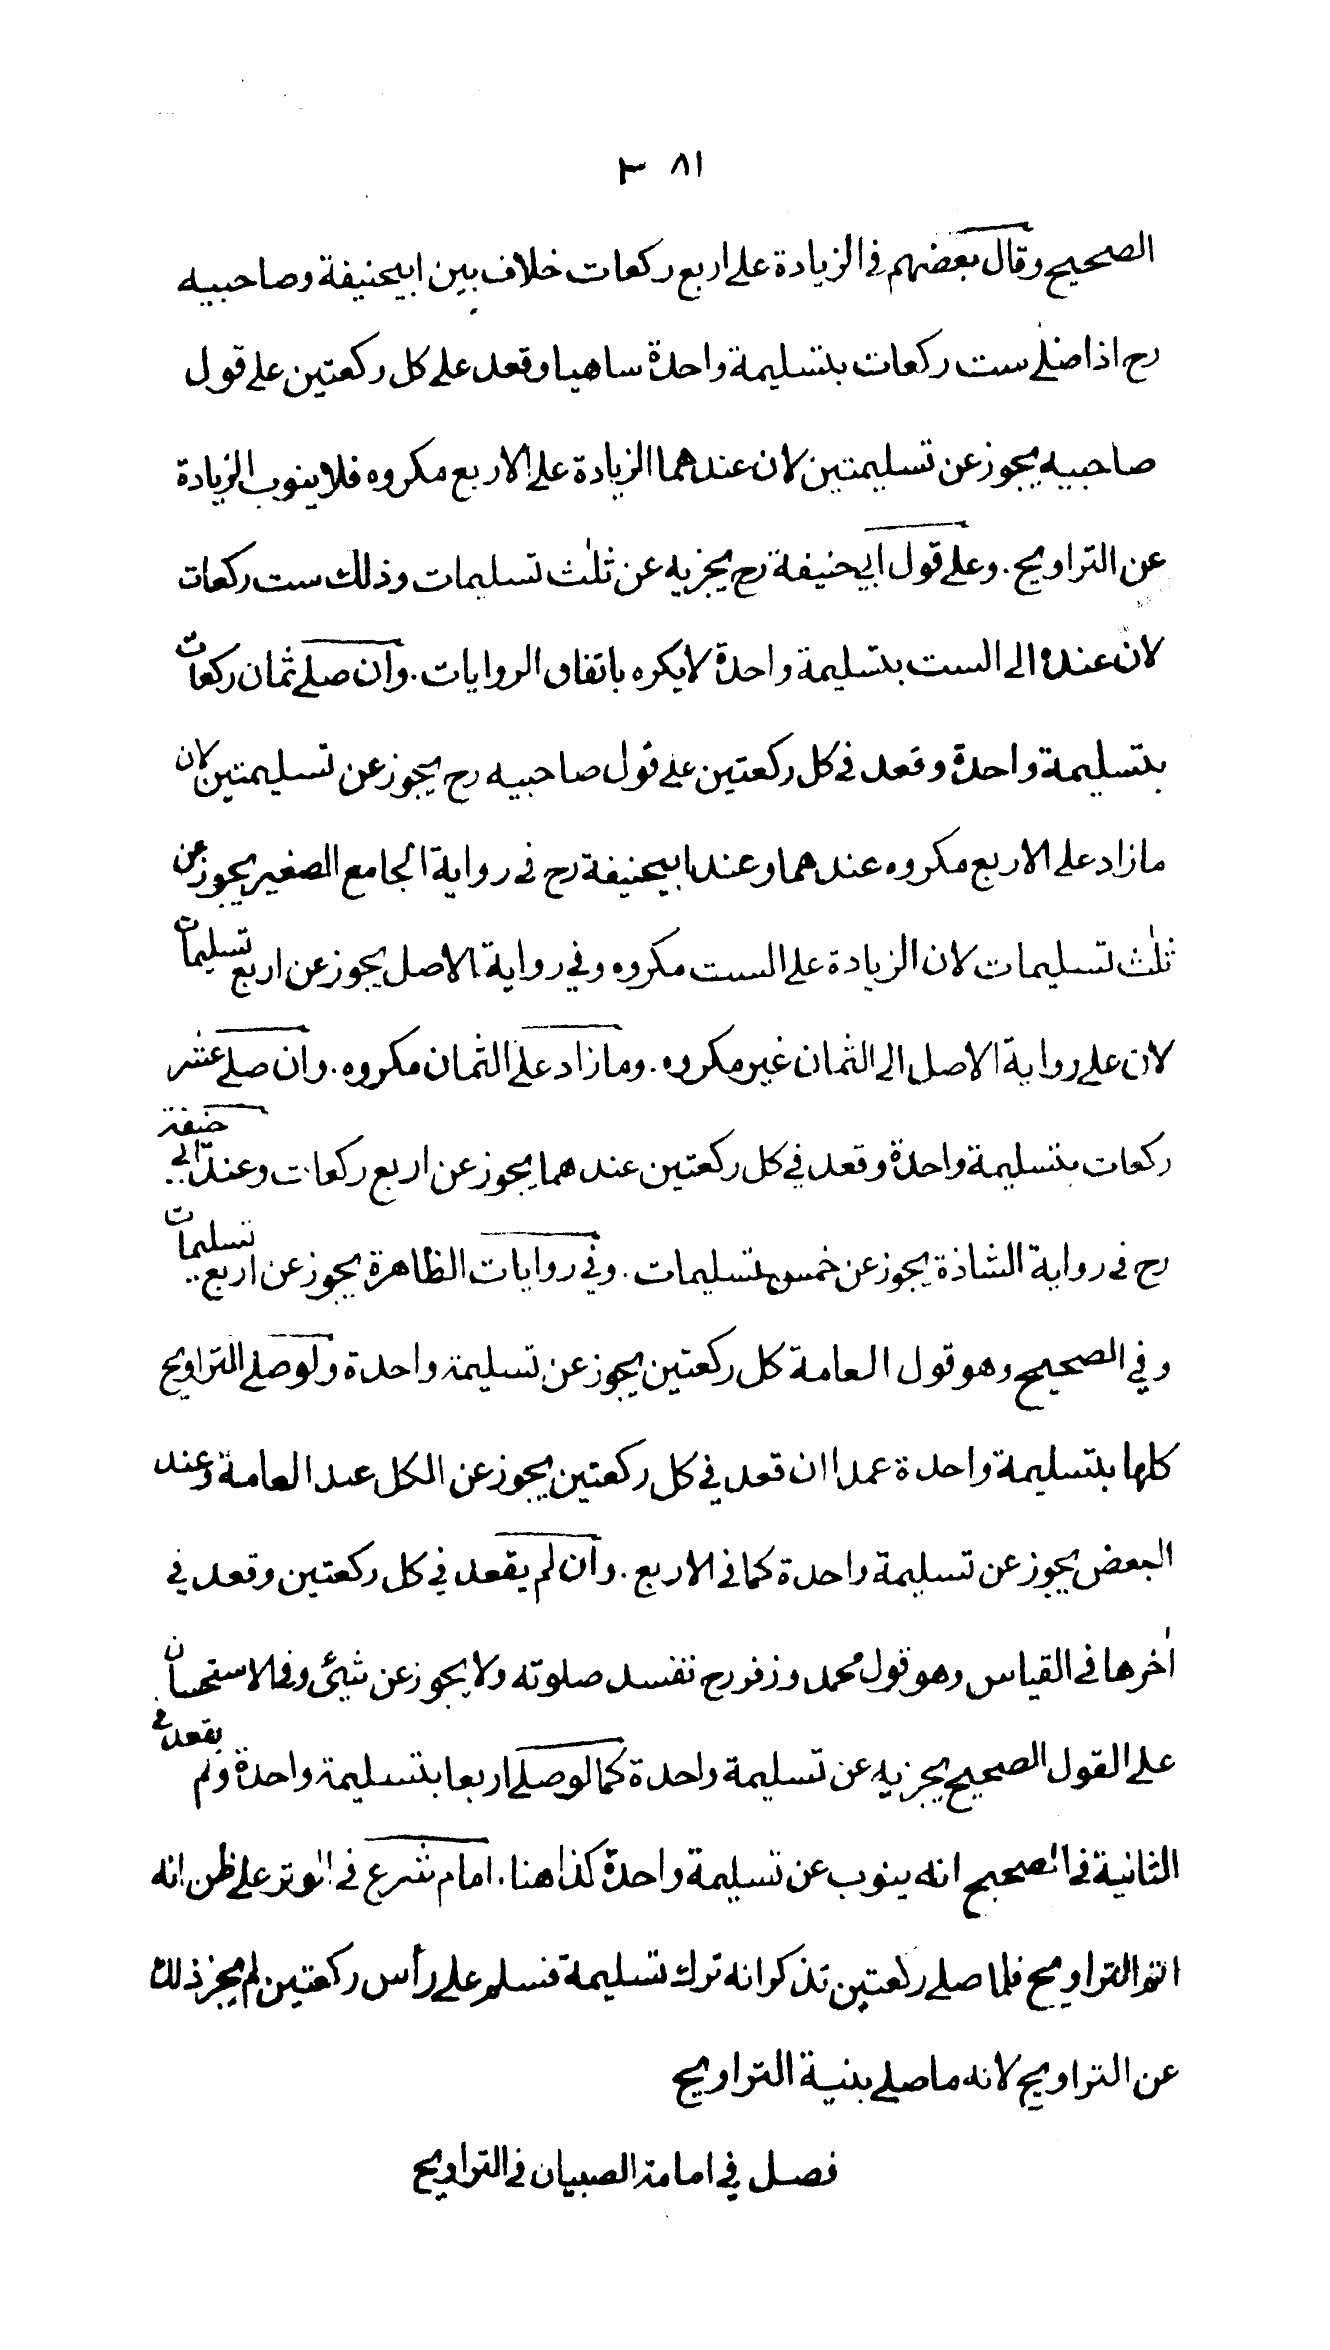 ٣ ٨١
الصحيح وقال بعضهم فى الزيادة على اربع ركعات خلاف بين ابيحنيفة وصاحبيه
رح اذا صلے ست ركعات بتسليمة واحدة ساهيا وقعد على كل ركعتين على قول
صاحبيه يجوز عن تسليمتين لان عندهما الزيادة على الاربع مكروه فلا ينوب الزيادة
عن التراويح . وعلى قول ابي حنيفة رح يجزيه عن ثلٰث تسليمات وذلك ست ركعات
لان عنده الى الست بتسليمة واحدة لا يكره باتفاق الروايات . وان صلے ثمان ركعات
بتسليمة واحدة وقعد فى كل ركعتين على قول صاحبيه رح يجوز عن تسليمتين لان
ما زاد على الاربع مكروه عندهما وعند ابيحنيفة رح فى رواية الجامع الصغير يجوز عن
ثلٰث تسليمات لان الزيادة على الست مكروه وفي رواية الاصل يجوز عن اربع تسليمات
لان على رواية الاصل الى الثمان غير مكروه . وما زاد على الثمان مكروه . وان صلے عشر
ركعات بتسليمة واحدة وقعد في كل ركعتين عندهما يجوز عن اربع ركعات وعند ابي حنيفة
رح فى رواية الشاذة يجوز عن خمس تسليمات . وفي روايات الظاهرة يجوز عن اربع تسليمات
وفي الصحيح وهو قول العامة كل ركعتين يجوز عن تسليمة واحدة ولو صلے التراويح
كلها بتسليمة واحدة عمدا ان قعد في كل ركعتين يجوز عن الكل عند العامة وعند
البعض يجوز عن تسليمة واحدة كما فى الاربع . وان لم يقعد في كل ركعتين وقعد في
اٰخرها فى القياس وهو قول محمد وزفر رح تفسد صلوته ولا يجوز عن شيئ وفى الاستحسان
على القول الصحيح يجزيه عن تسليمة واحدة كما لو صلے اربعا بتسليمة واحدة ولم يقعد فى
الثانية فى الصحيح انه ينوب عن تسليمة واحدة كذا هنا . امام شرع فى الوتر على ظن انه
اتم التراويح فلما صلے ركعتين تذكر انه ترك تسليمة فسلم على رأس ركعتين لم يجز ذلك
عن التراويح لانه ما صلے بنية التراويح
فصل في امامة الصبيان فى التراويح